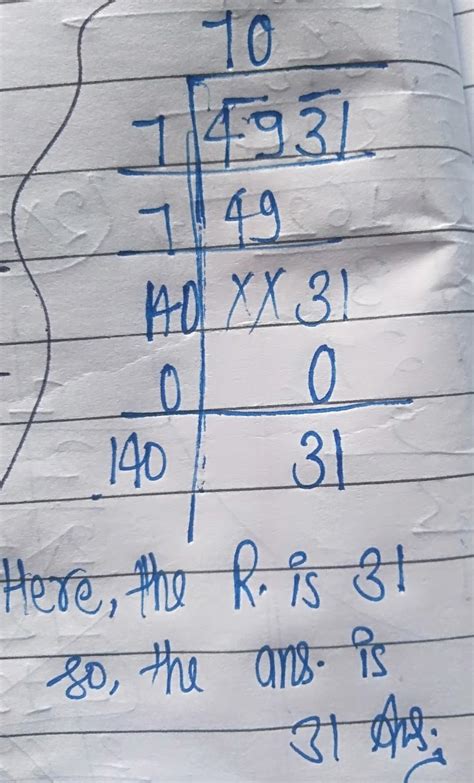 70
7 4931
7 49
140 XX31
0 0
140 31
Here, the R. is 31
so, the ans. is
31 Ans.